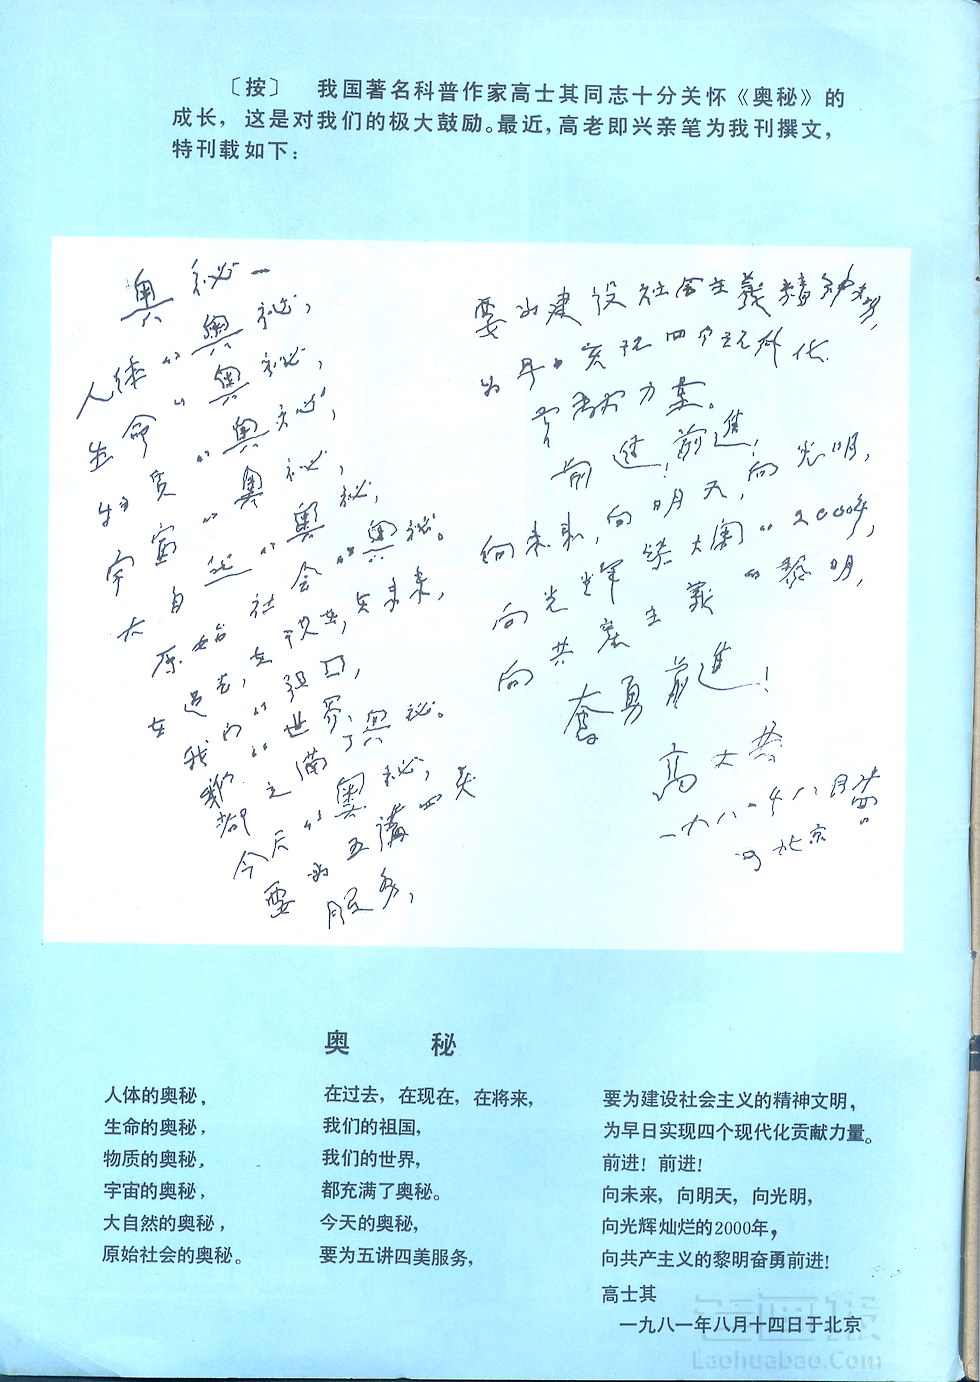 〔按〕 我国著名科普作家高士其同志十分关怀《奥秘》的
成长，这是对我们的极大鼓励。最近，高老即兴亲笔为我刊撰文，
特刊载如下：
奥秘—
人体的奥秘，
生命的奥秘，
物质的奥秘，
宇宙的奥秘，
大自然的奥秘，
原始社会的奥秘。
在过去，在现在，在未来，
我们的祖国，
我们的世界，
都充满了奥秘。
今天的奥秘，
要为五讲四美
服务，
要为建设社会主义精神文明，
为早日实现四个现代化
贡献力量。
前进！前进！
向未来，向明天，向光明，
向光辉灿烂的2000年，
向共产主义的黎明，
奋勇前进！
高士其
一九八一年八月十四日
于北京
奥秘
人体的奥秘，
生命的奥秘，
物质的奥秘，
宇宙的奥秘，
大自然的奥秘，
原始社会的奥秘。
在过去，在现在，在将来，
我们的祖国，
我们的世界，
都充满了奥秘。
今天的奥秘，
要为五讲四美服务，
要为建设社会主义的精神文明，
为早日实现四个现代化贡献力量。
前进！前进！
向未来，向明天，向光明，
向光辉灿烂的2000年，
向共产主义的黎明奋勇前进！
高士其
一九八一年八月十四日于北京
老画报
Laohuabao.Com